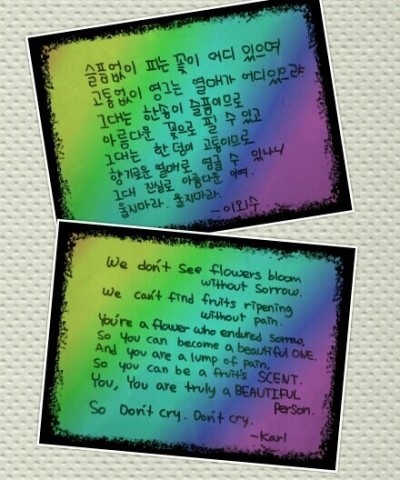 슬픔없이 피는 꽃이 어디 있으며
고통없이 영그는 열매가 어디있으랴
그대는 한송이 슬픔이므로
아름다운 꽃으로 필 수 있고
그대는 한 덩이 고통이므로
향기로운 열매로 영글 수 있나니
그대 진실로 아름다운 이여.
울지마라. 울지마라.
- 이외수
We don't see flowers bloom
without sorrow.
We can't find fruits ripening
without pain.
You're a flower who endured sorrow,
So you can become a beautiful ONE.
And you are a lump of pain,
So you can be a fruit's SCENT.
You, You are truly a BEAUTIFUL
Person.
So Don't cry. Don't cry.
- Karl